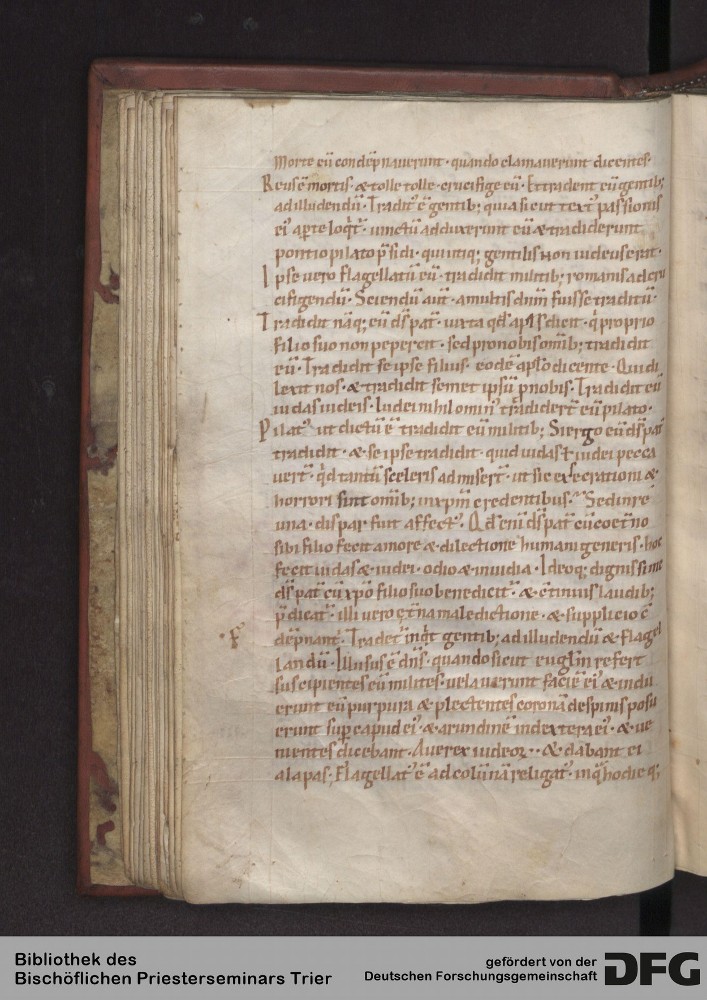 morte eū condēpnauerunt · quando clamauerunt dicentes ·
Reus ē mortis · & tolle tolle · crucifige eū · Et tradent eū gentib;
ad illudendū · Tradit᷒ ē gentib; quia sicut text᷒ passionis
ei᷒ aperte loqt̄ · uinctū adduxerunt eū & tradiderunt
pontio pilato p̄sidi · qui utiq; gentilis non iudeus erat ·
Ipse uero flagellatū eū · tradidit militib; romanis ad cru
cifigendū · Sciendū aut̄ · a multis dn̄m fuisse traditū ·
Tradidit nāq; eū ds̄ pat̄ · iuxta qd̄ apl̄s dicit · q̇ proprio
filio suo non pepercit · sed pro nobis omīb; tradidit
eū · Tradidit se ipse filius · eodē apl̄o dicente · Qui di
lexit nos · & tradidit semet ipsū p nobis · Tradidit eū
iudas iudeis · Iudei nihilomin᷒ tradider̄t eū pilato ·
Pilat᷒ ut dictū ē tradidit eū militib; Si ergo eū ds̄ pat̄
tradidit · & se ipse tradidit · quid iudas t̄ iudei pecca
uer̄t · qd̄ tantū sceleris admiser̄t · ut sic execrationi &
horrori sint omīb; in xp̄m credentibus · Sed in re
una · dispar fuit affect᷒ · Qd̄ eni ds̄ pat̄ cū coet̄no
sibi filio fecit amore & dilectione humani generis · hoc
fecit iudas & iudei · odio & inuidia · Ideoq; dignissime
ds̄ pat̄ cū xp̄o filio suo benedicit᷒ · & c̄tinuis laudib;
p̄dicat᷒ · illi uero et̄na maledictione · & supplicio c̄
dēpnant᷒ · Tradet̄ inqt̄ gentib; ad illudendū & flagel
landū · Illusus ē dn̄s · quando sicut euglm̄ refert
suscipientes eū milites · uelauerunt faciē ei᷒ & indu
erunt eū purpura & plectentes coronā de spinis posu
erunt sup capud ei᷒ & arundinē in dextera ei᷒ · & ue
nientes dicebant · Aue rex iudeoꝝ · & dabant ei
alapas; Flagellat᷒ ē ad colūnā religat᷒ · in q̄ hodie q;
Bibliothek des
Bischöflichen Priesterseminars Trier
gefördert von der
Deutschen Forschungsgemeinschaft
DFG